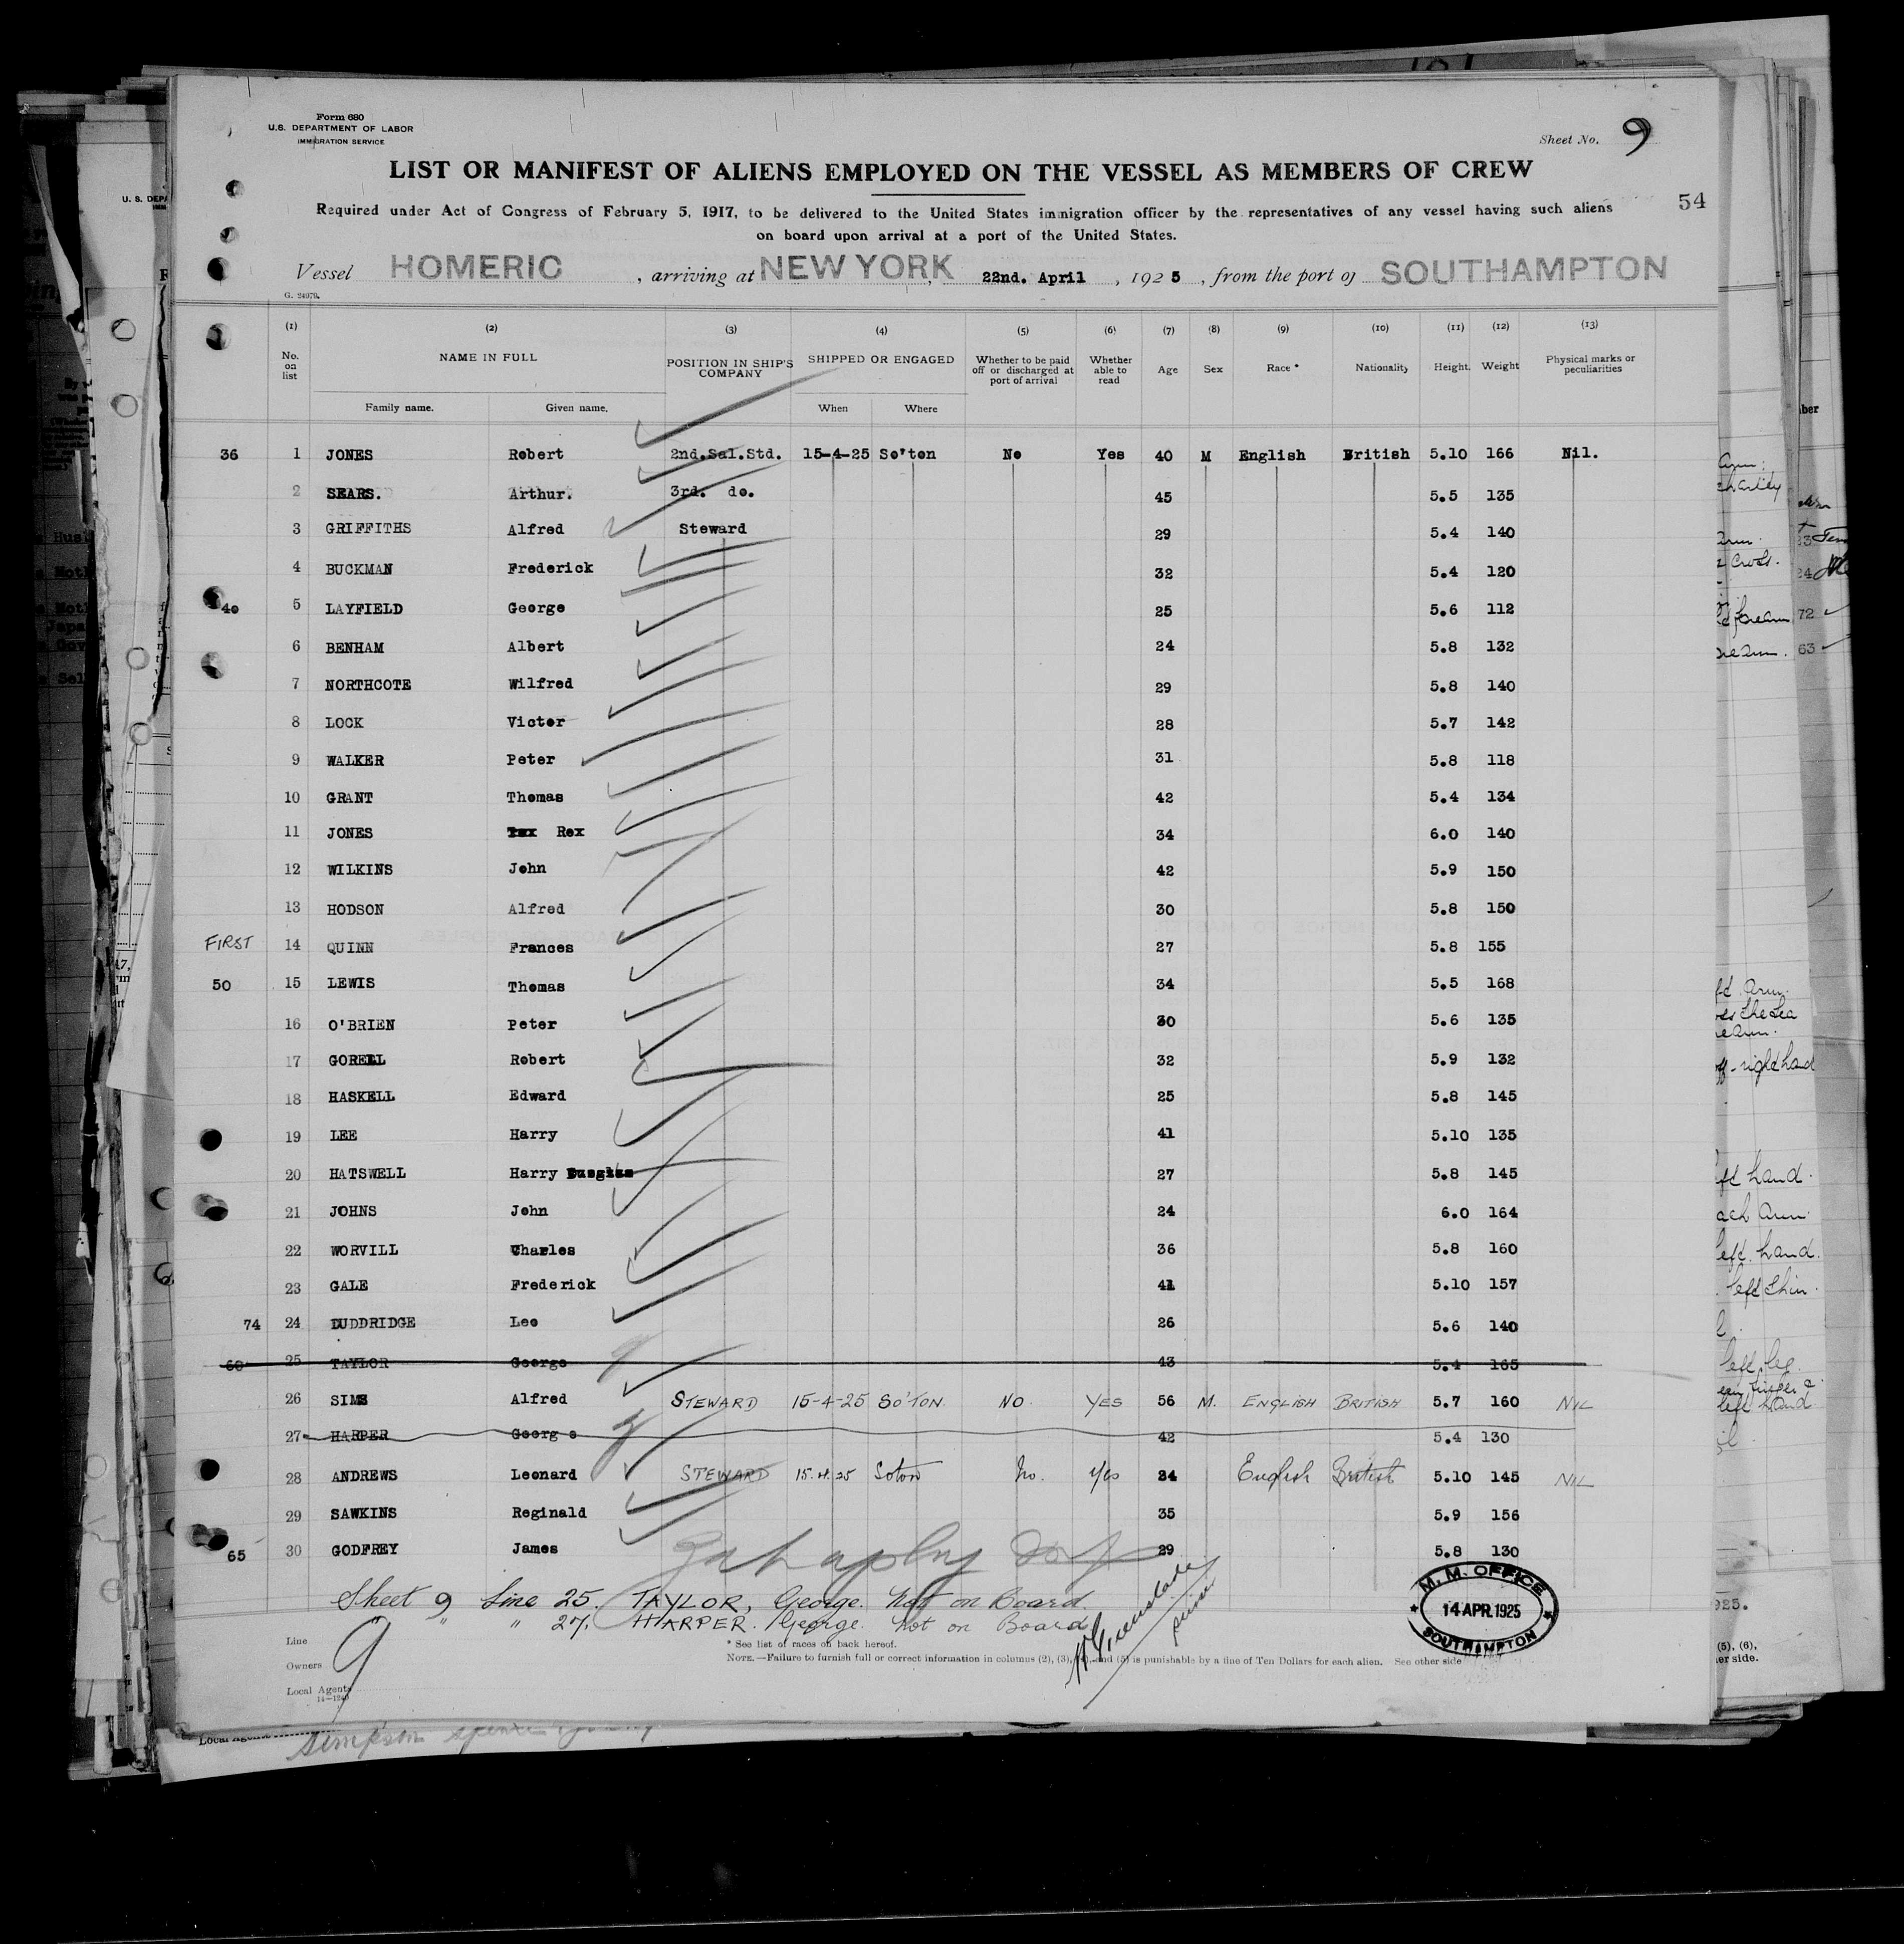 Form 680
U.S. DEPARTMENT OF LABOR
IMMIGRATION SERVICE
Sheet No. 9
LIST OR MANIFEST OF ALIENS EMPLOYED ON THE VESSEL AS MEMBERS OF CREW
54
Required under Act of Congress of February 5, 1917, to be delivered to the United States immigration officer by the representatives of any vessel having such aliens
on board upon arrival at a port of the United States.
Vessel HOMERIC , arriving at NEW YORK 22nd. April , 1925 , from the port of SOUTHAMPTON
G. 24970.
(1) (2) (3) (4) (5) (6) (7) (8) (9) (10) (11) (12) (13)
No. on list NAME IN FULL POSITION IN SHIP'S COMPANY SHIPPED OR ENGAGED Whether to be paid off or discharged at port of arrival Whether able to read Age Sex Race * Nationality Height. Weight Physical marks or peculiarities
Family name. Given name. When Where
36 1 JONES Robert 2nd.Sal.Std. 15-4-25 So'ton No Yes 40 M English British 5.10 166 Nil.
2 SEARS. Arthur. 3rd. do. 45 5.5 135
3 GRIFFITHS Alfred Steward 29 5.4 140
4 BUCKMAN Frederick 32 5.4 120
40 5 LAYFIELD George 25 5.6 112
6 BENHAM Albert 24 5.8 132
7 NORTHCOTE Wilfred 29 5.8 140
8 LOCK Victor 28 5.7 142
9 WALKER Peter 31 5.8 118
10 GRANT Thomas 42 5.4 134
11 JONES Rex 34 6.0 140
12 WILKINS John 42 5.9 150
13 HODSON Alfred 30 5.8 150
FIRST 14 QUINN Frances 27 5.8 155
50 15 LEWIS Thomas 34 5.5 168
16 O'BRIEN Peter 30 5.6 135
17 GORELL Robert 32 5.9 132
18 HASKELL Edward 25 5.8 145
19 LEE Harry 41 5.10 135
20 HATSWELL Harry 27 5.8 145
21 JOHNS John 24 6.0 164
22 WORVILL Charles 36 5.8 160
23 GALE Frederick 41 5.10 157
74 24 DUDDRIDGE Leo 26 5.6 140
60 25 TAYLOR George 43 5.4 165
26 SIMS Alfred STEWARD 15-4-25 SO'TON. NO. YES 56 M. ENGLISH BRITISH 5.7 160 NIL
27 HARPER George 42 5.4 130
28 ANDREWS Leonard STEWARD 15.4.25 Soton No. Yes 34 English British 5.10 145 NIL
29 SAWKINS Reginald 35 5.9 156
65 30 GODFREY James 29 5.8 130
Sheet 9 Line 25. TAYLOR, George. Not on Board.
" 27. HARPER. George. Not on Board
M. M. OFFICE
14 APR. 1925
SOUTHAMPTON
9
* See list of races on back hereof.
NOTE.—Failure to furnish full or correct information in columns (2), (3), (4), and (5) is punishable by a fine of Ten Dollars for each alien. See other side
Line
Owners
Local Agents
14—1240